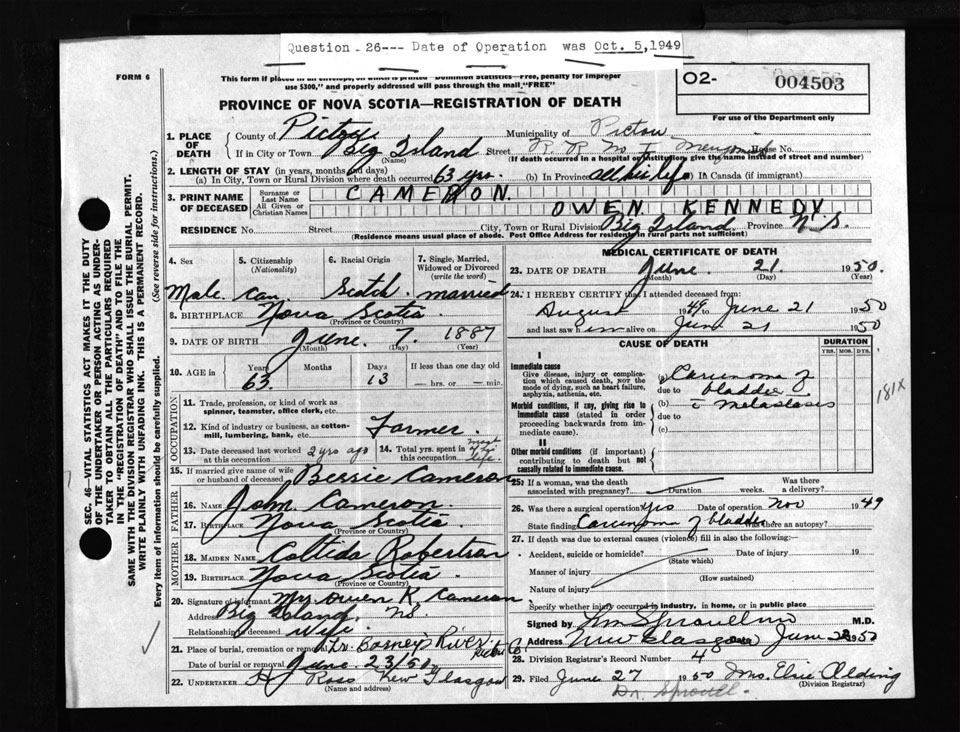 Question - 26--- Date of Operation was Oct. 5, 1949
FORM 6
O2- 004503
For use of the Department only
use $300," and properly addressed will pass through the mail "FREE"
PROVINCE OF NOVA SCOTIA—REGISTRATION OF DEATH
SEC. 46 VITAL STATISTICS ACT MAKES IT THE DUTY
OF THE UNDERTAKER OR PERSON ACTING AS UNDER-
TAKER TO OBTAIN ALL THE PARTICULARS REQUIRED
IN THE "REGISTRATION OF DEATH" AND TO FILE THE
SAME WITH THE DIVISION REGISTRAR WHO SHALL ISSUE THE BURIAL PERMIT.
WRITE PLAINLY WITH UNFADING INK. THIS IS A PERMANENT RECORD.
Every item of information should be carefully supplied. (See reverse side for instructions.)
1. PLACE OF DEATH County of Pictou Municipality of Pictou
If in City or Town Big Island Street R R No 1 House No.
(Name) (If death occurred in a hospital or institution, give the name instead of street and number)
2. LENGTH OF STAY (in years, months and days)
(a) In City, Town or Rural Division where death occurred 63 yrs. (b) In Province all his life In Canada (if immigrant)
3. PRINT NAME OF DECEASED Surname or Last Name CAMERON.
All Given or Christian Names OWEN KENNEDY
RESIDENCE No. Street City, Town or Rural Division Big Island Province N.S.
(Residence means usual place of abode. Post Office Address for residents in rural parts not sufficient)
4. Sex 5. Citizenship (Nationality) 6. Racial Origin 7. Single, Married, Widowed or Divorced (write the word)
Male. Can. Scotch. married
8. BIRTHPLACE Nova Scotia.
(Province or Country)
9. DATE OF BIRTH June. 7. 1887
(Month) (Day) (Year)
10. AGE in Years 63. Months Days 13 If less than one day old — hrs. or — min.
OCCUPATION
11. Trade, profession, or kind of work as spinner, teamster, office clerk, etc.
12. Kind of industry or business, as cotton-mill, lumbering, bank, etc. Farmer.
13. Date deceased last worked at this occupation 2 yrs ago 14. Total yrs. spent in this occupation most of his life.
15. If married give name of wife or husband of deceased Bessie Cameron
FATHER
16. NAME John Cameron.
17. BIRTHPLACE Nova Scotia.
(Province or Country)
MOTHER
18. MAIDEN NAME Robertson
19. BIRTHPLACE Nova Scotia.
(Province or Country)
20. Signature of informant Mrs Owen K Cameron.
Address Big Island. NS.
Relationship to deceased Wife.
21. Place of burial, cremation or removal Barneys River. Pictou Co
Date of burial or removal June 23/50.
22. UNDERTAKER Ross New Glasgow
(Name and address)
MEDICAL CERTIFICATE OF DEATH
23. DATE OF DEATH June. 21. 1950.
(Month) (Day)
24. I HEREBY CERTIFY that I attended deceased from:
August 1949 to June 21 1950
and last saw him alive on June 21 1950
CAUSE OF DEATH DURATION
YRS. MOS. DYS.
I
Immediate cause
Give disease, injury or complication which caused death, not the mode of dying, such as heart failure, asphyxia, asthenia, etc.
(a) Carcinoma of
due to bladder
Morbid conditions, if any, giving rise to immediate cause (stated in order proceeding backwards from immediate cause).
(b) c̄ metastasis
due to
(c)
181X
II
Other morbid conditions (if important) contributing to death but not causally related to immediate cause.
25. If a woman, was the death associated with pregnancy? Duration weeks. Was there a delivery?
26. Was there a surgical operation? yes Date of operation Nov 1949
State finding Carcinoma of bladder Was there an autopsy?
27. If death was due to external causes (violence) fill in also the following:
Accident, suicide or homicide? Date of injury 19
(State which)
Manner of injury
(How sustained)
Nature of injury
Specify whether injury occurred in industry, in home, or in public place
Signed by M.D.
Address New Glasgow Date June 22 1950
28. Division Registrar's Record Number 4
29. Filed June 27 1950 Mrs. Elsie Olding
(Division Registrar)
Dr. Sproull.